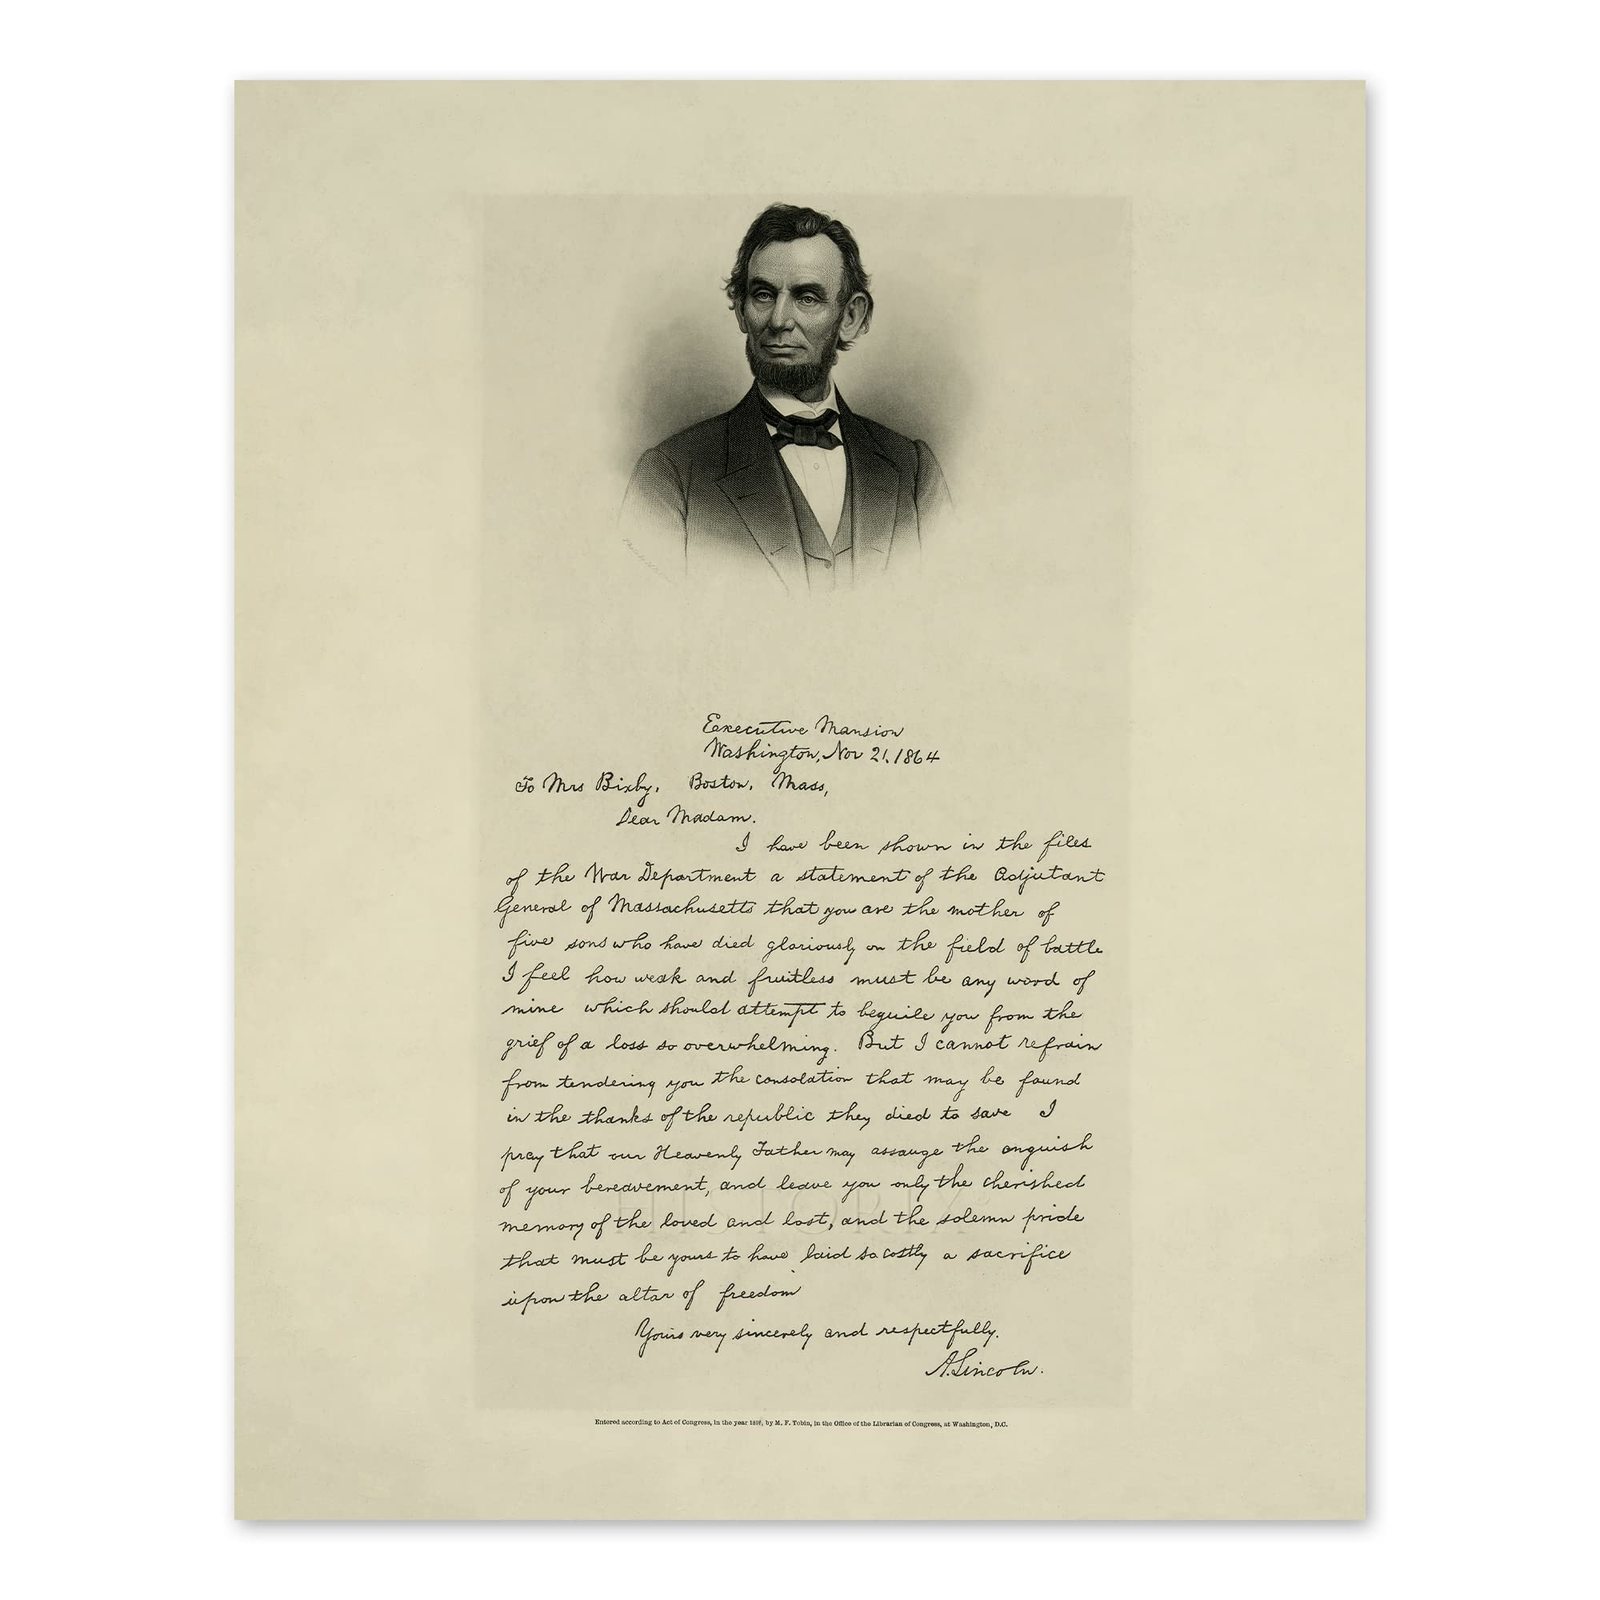 Executive Mansion
Washington, Nov 21. 1864
To Mrs Bixby, Boston, Mass,
Dear Madam.
I have been shown in the files
of the War Department a statement of the Adjutant
General of Massachusetts that you are the mother of
five sons who have died gloriously on the field of battle
I feel how weak and fruitless must be any word of
mine which should attempt to beguile you from the
grief of a loss so overwhelming. But I cannot refrain
from tendering you the consolation that may be found
in the thanks of the republic they died to save I
pray that our Heavenly Father may assauge the anguish
of your bereavement, and leave you only the cherished
memory of the loved and lost, and the solemn pride
that must be yours to have laid so costly a sacrifice
upon the altar of freedom
Yours very sincerely and respectfully.
A. Lincoln.
Entered according to Act of Congress, in the year by M. F. Tobin, in the Office of the Librarian of Congress, at Washington, D.C.